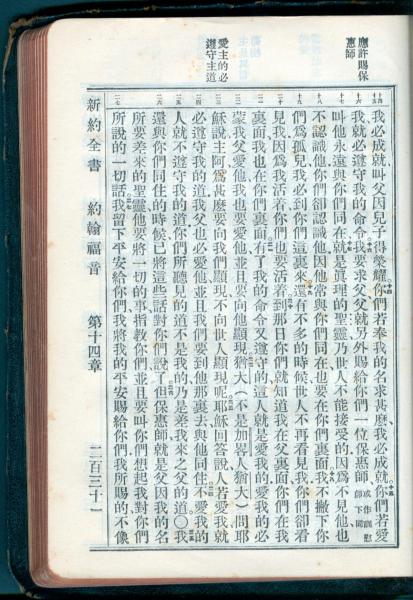 應許賜保
惠師
愛主的必
遵守主道
我必成就叫父因兒子得榮耀你們若奉我的名求甚麼我必成就你們若愛
我就必遵守我的命令我要求父父就另外賜給你們一位保惠師或作訓慰師下同
叫他永遠與你們同在就是眞理的聖靈乃世人不能接受的因爲不見他也
不認識他你們卻認識他因他常與你們同在也要在你們裏面我不撇下你
們爲孤兒我必到你們這裏來還有不多的時候世人不再看見我你們卻看
見我因爲我活着你們也要活着到那日你們就知道我在父裏面你們在我
裏面我也在你們裏面有了我的命令又遵守的這人就是愛我的愛我的必
蒙我父愛他我也要愛他並且要向他顯現猶大(不是加畧人猶大)問耶
穌說主阿爲甚麼要向我們顯現不向世人顯現呢耶穌回答說人若愛我就
必遵守我的道我父也必愛他並且我們要到他那裏去與他同住不愛我的
人就不遵守我的道你們所聽見的道不是我的乃是差我來之父的道〇我
還與你們同住的時候已將這些話對你們說了但保惠師就是父因我的名
所要差來的聖靈他要將一切的事指教你們並且要叫你們想起我對你們
所說的一切話我留下平安給你們我將我的平安賜給你們我所賜的不像
新約全書 約翰福音 第十四章 二百三十一